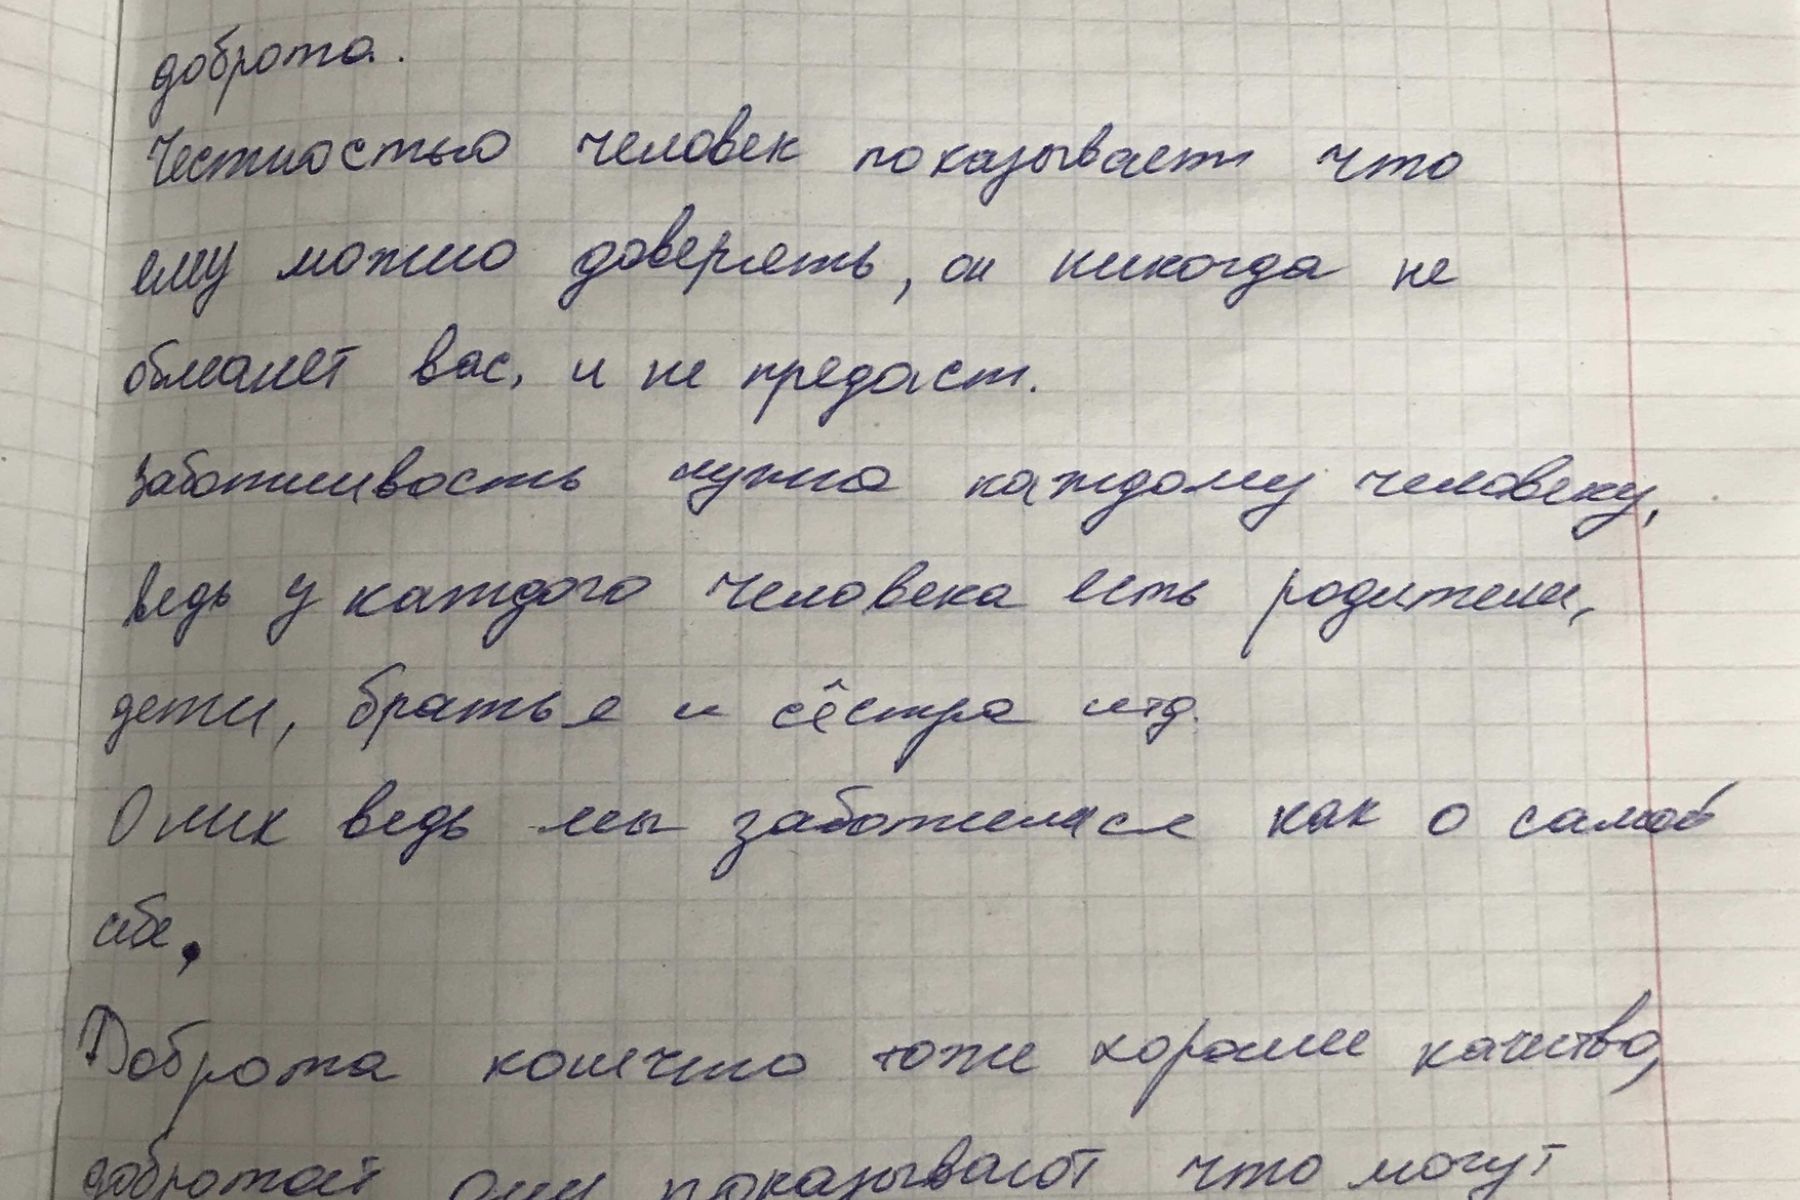 доброта.
Честностью человек показывает что
ему можно доверять, он никогда не
обманет вас, и не предаст.
Заботливость нужна каждому человеку,
ведь у каждого человека есть родители,
дети, братья и сёстра итд.
О них ведь мы заботимся как о самой
себе.
Доброта конечно тоже хорошее качество,
добротой они показывают что могут